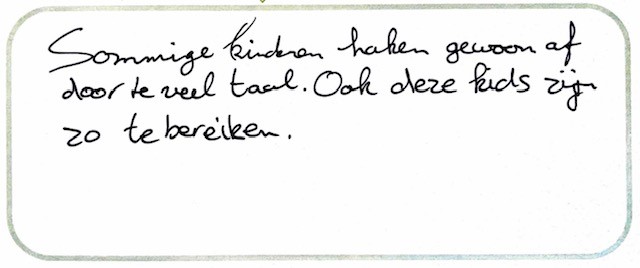 Sommige kinderen haken gewoon af
door te veel taal. Ook deze kids zijn
zo te bereiken.